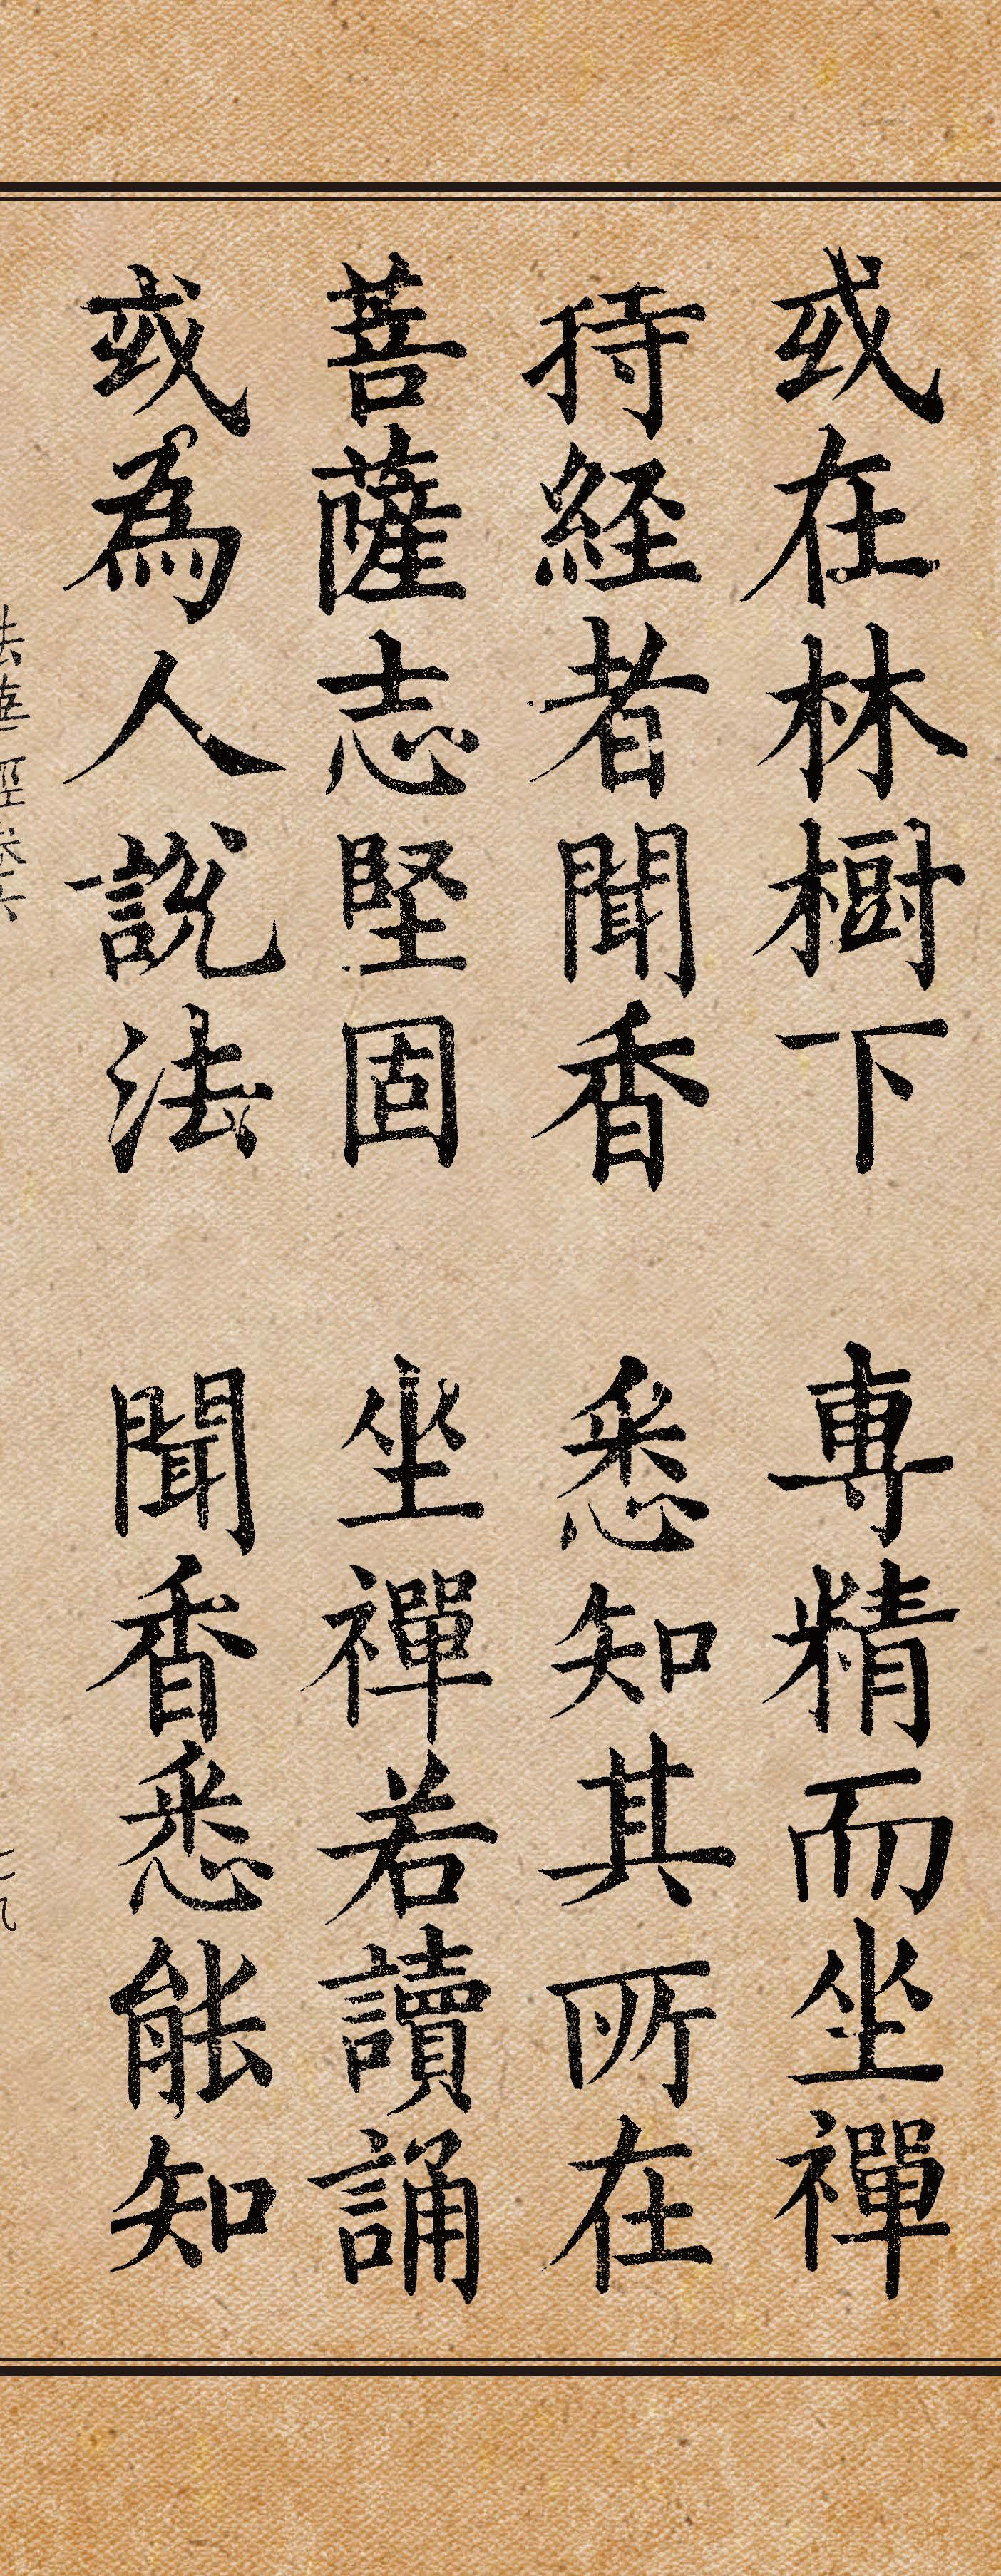 或在林樹下 專精而坐禪
持經者聞香 悉知其所在
菩薩志堅固 坐禪若讀誦
或為人說法 聞香悉能知
法華經卷六